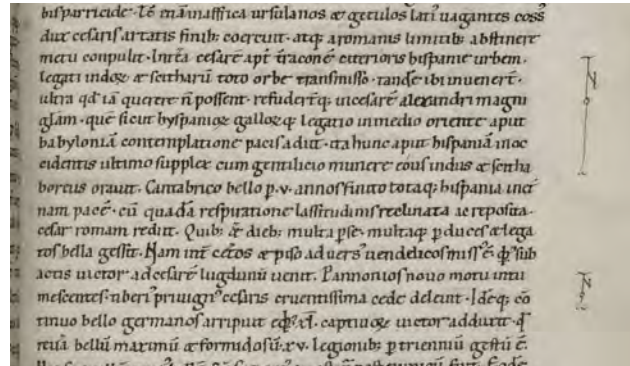 dux cesaris artatis finib; coercuit · atq; a romanis limitib; abstinere
metu conpulit · Int̄ea cesarē ap̄t traconē citerioris hispanie urbem ·
legati indoꝝ & scitharū toto orbe transmisso · tandē ibi inuenert̄ ·
ultra qđ iā querere n̄ possent · refudert̄q; in cesarē alexandri magni
glām · quē sicut hyspanioꝝ galloꝝq; legatio in medio oriente aput
babyloniā contemplatione pacis adiit · ita hunc aput hispaniā in oc
cidentis ultimo supplex cum gentilicio munere eous indus & scitha
boreus orauit · Cantabrico bello p · v · annos finito totaq; hispania in et̄
nam pacē · cū quadā respiratione lassitudinis reclinata ac reposita ·
cesar romam rediit · Quib; & dieb; multa p se · multaq; p duces & lega
tos bella gessit · Nam int̄ cet̄os & piso aduers' uendelicos miss' ē · qͥb' sub
actis uictor ad cesarē lugdunū uenit · Pannonios novo motu intu
mescentes · tiberi' priuign' cesaris cruentissima cede deleuit · Idēq; cō
tinuo bello germanos arripuit eqͥb; xl · captiuoꝝ uictor adduxit · qđ
reuā bellū maximū & formidosū · xv · legionib; p triennium gestū ē ·